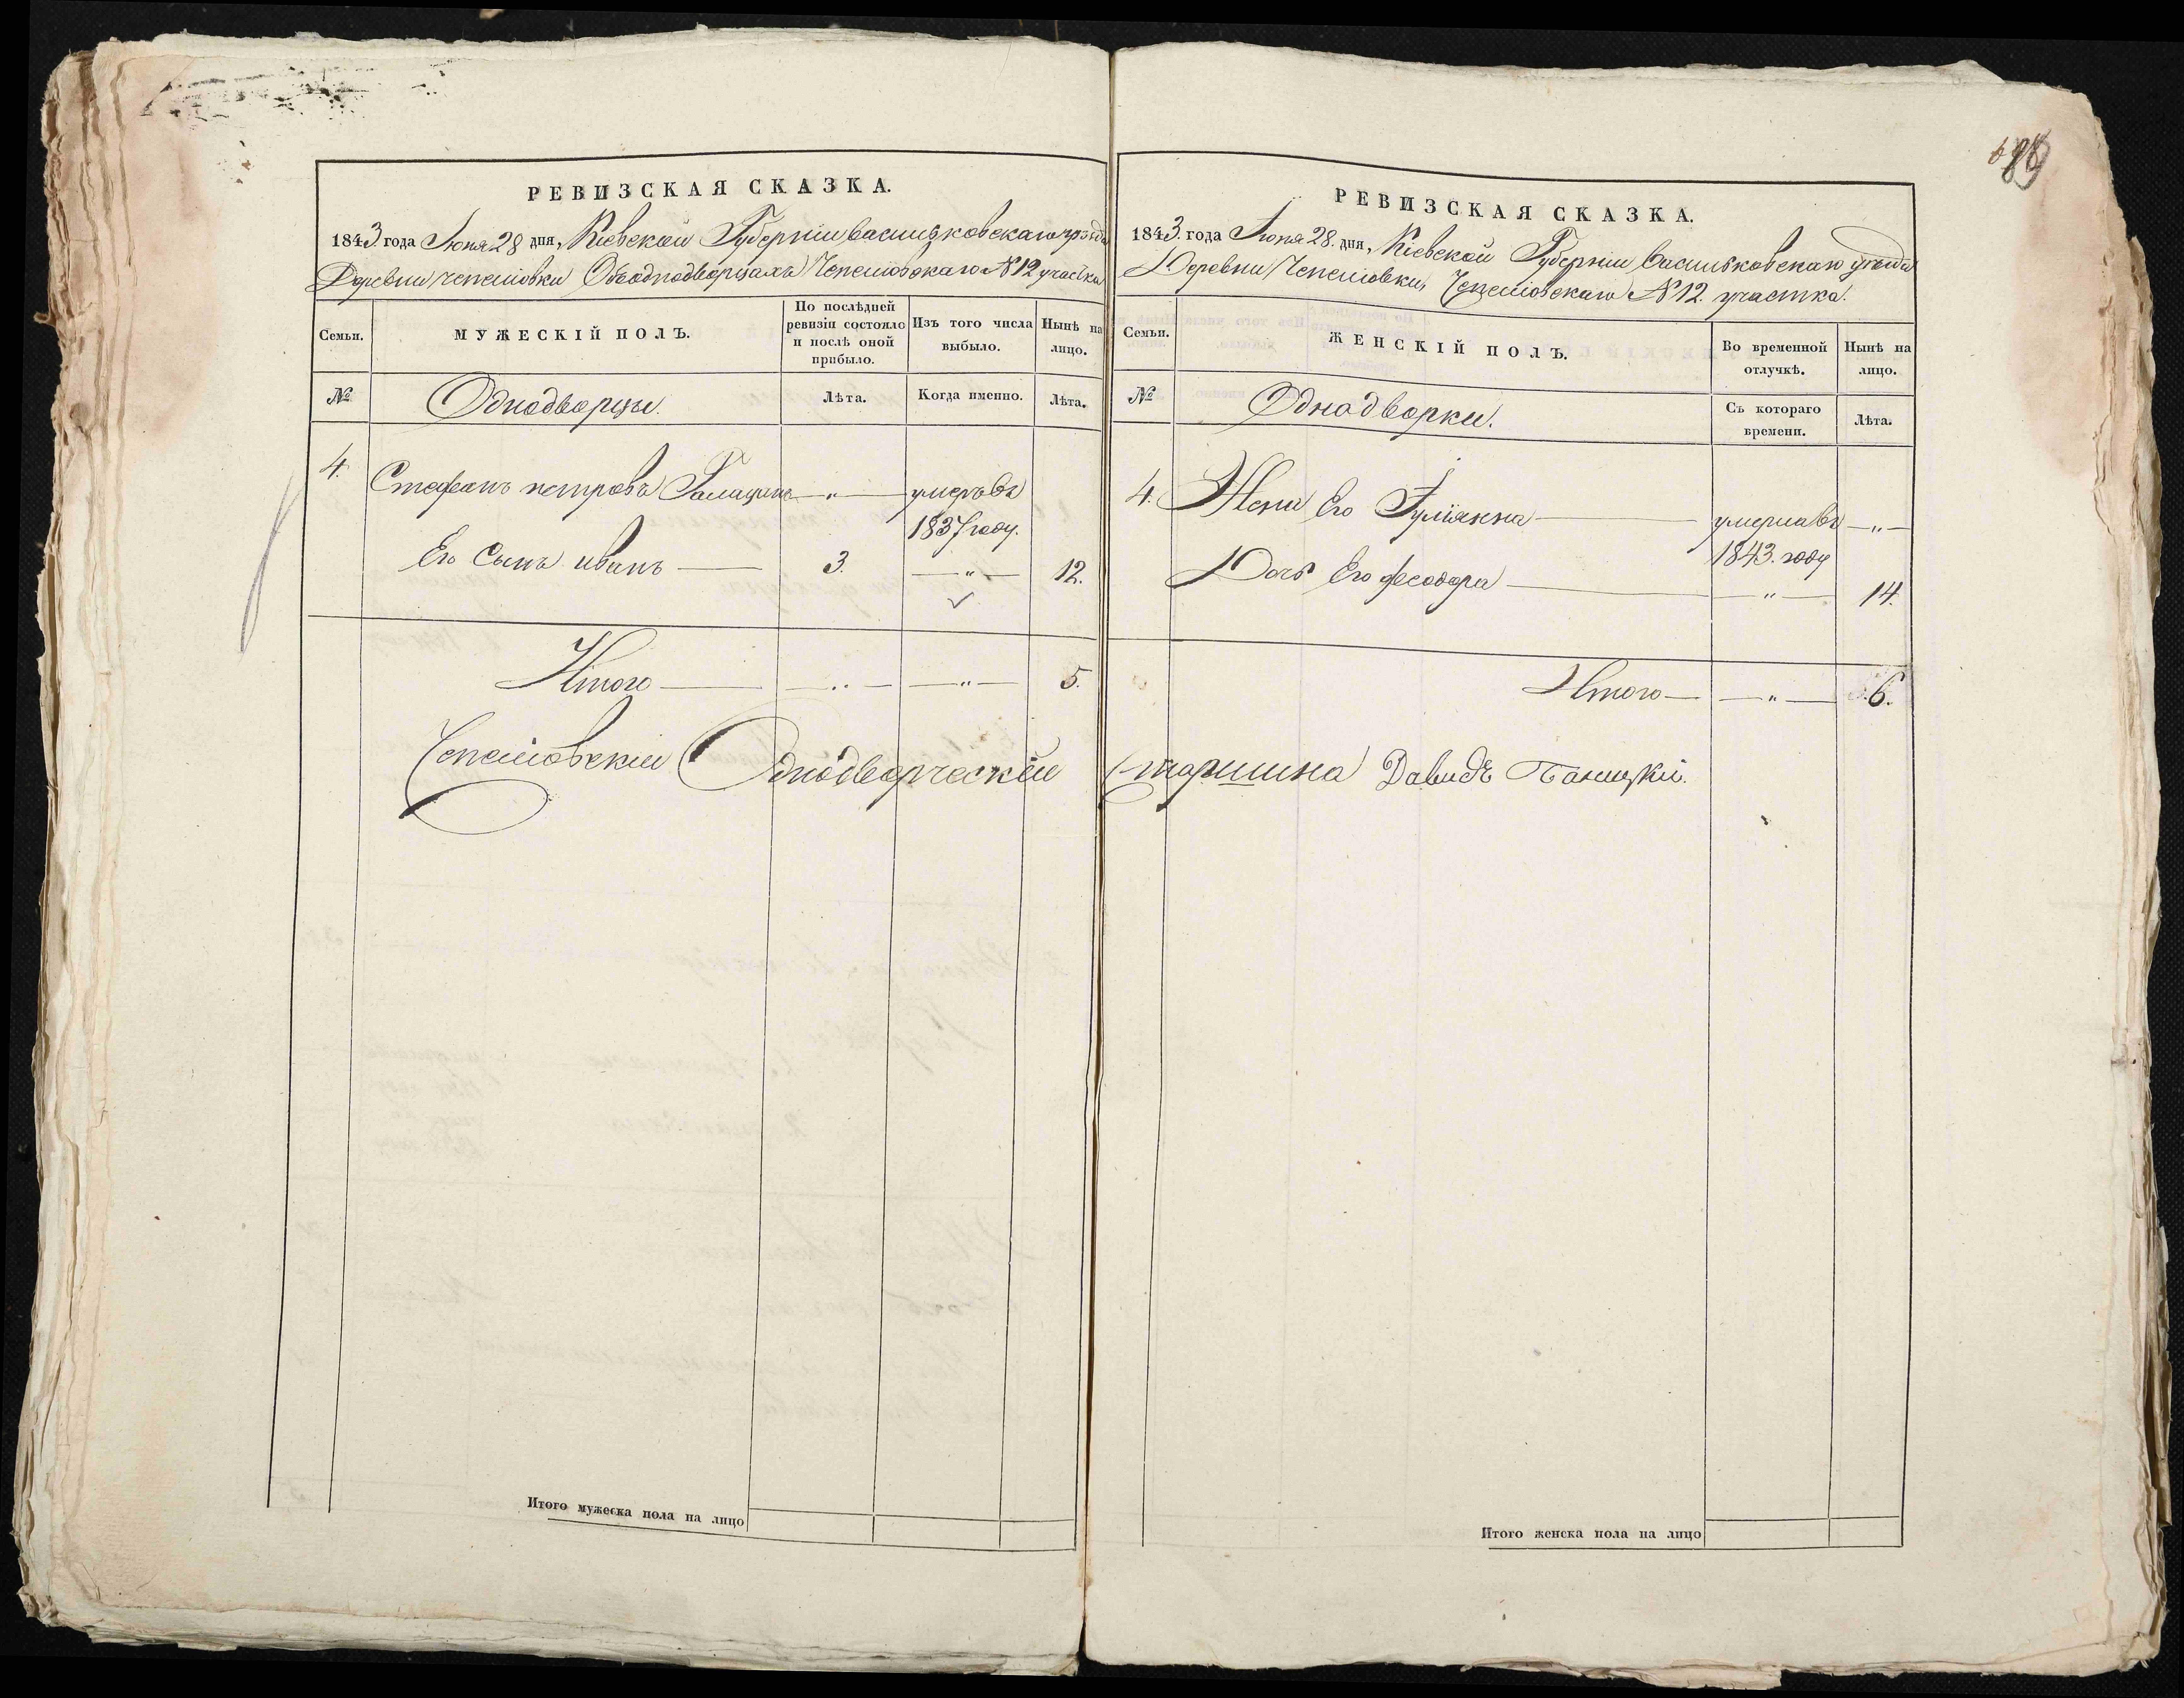 689
РЕВИЗСКАЯ СКАЗКА.
1843. года Июня 28 дня, Кіевской Губерніи Васильковскаго уѣзда
Деревни Чепеліовки Объ однодворцахъ Чепеліовскаго № 12 участка
Семьи.
МУЖЕСКІЙ ПОЛЪ.
По послѣдней
ревизіи состояло
и послѣ оной
прибыло.
Изъ того числа
выбыло.
Нынѣ на
лицо.
№
Однодворцы.
Лѣта.
Когда именно.
Лѣта.
4. Стефанъ петровъ — „ — умеръ въ
1837 году.
Его Сынъ иванъ — 3. — „ — 12.
Итого — — „ — — „ — 5.
Чепеліовскій Однодворческій
РЕВИЗСКАЯ СКАЗКА.
1843. года Июня 28. дня, Кіевской Губерніи Васильковскаго уѣзда
Деревни Чепеліовки, Чепеліовскаго № 12. участка.
Семьи.
ЖЕНСКІЙ ПОЛЪ.
Во временной
отлучкѣ.
Нынѣ на
лицо.
№
Однадворки.
Съ котораго
времени.
Лѣта.
4. Жена Его — умерла въ — „ —
1843. году
Дочь Его феодора — — „ — 14.
Итого — — „ — 6.
Старшина Давидъ Баницкій.
Итого мужеска пола на лицо
Итого женска пола на лицо